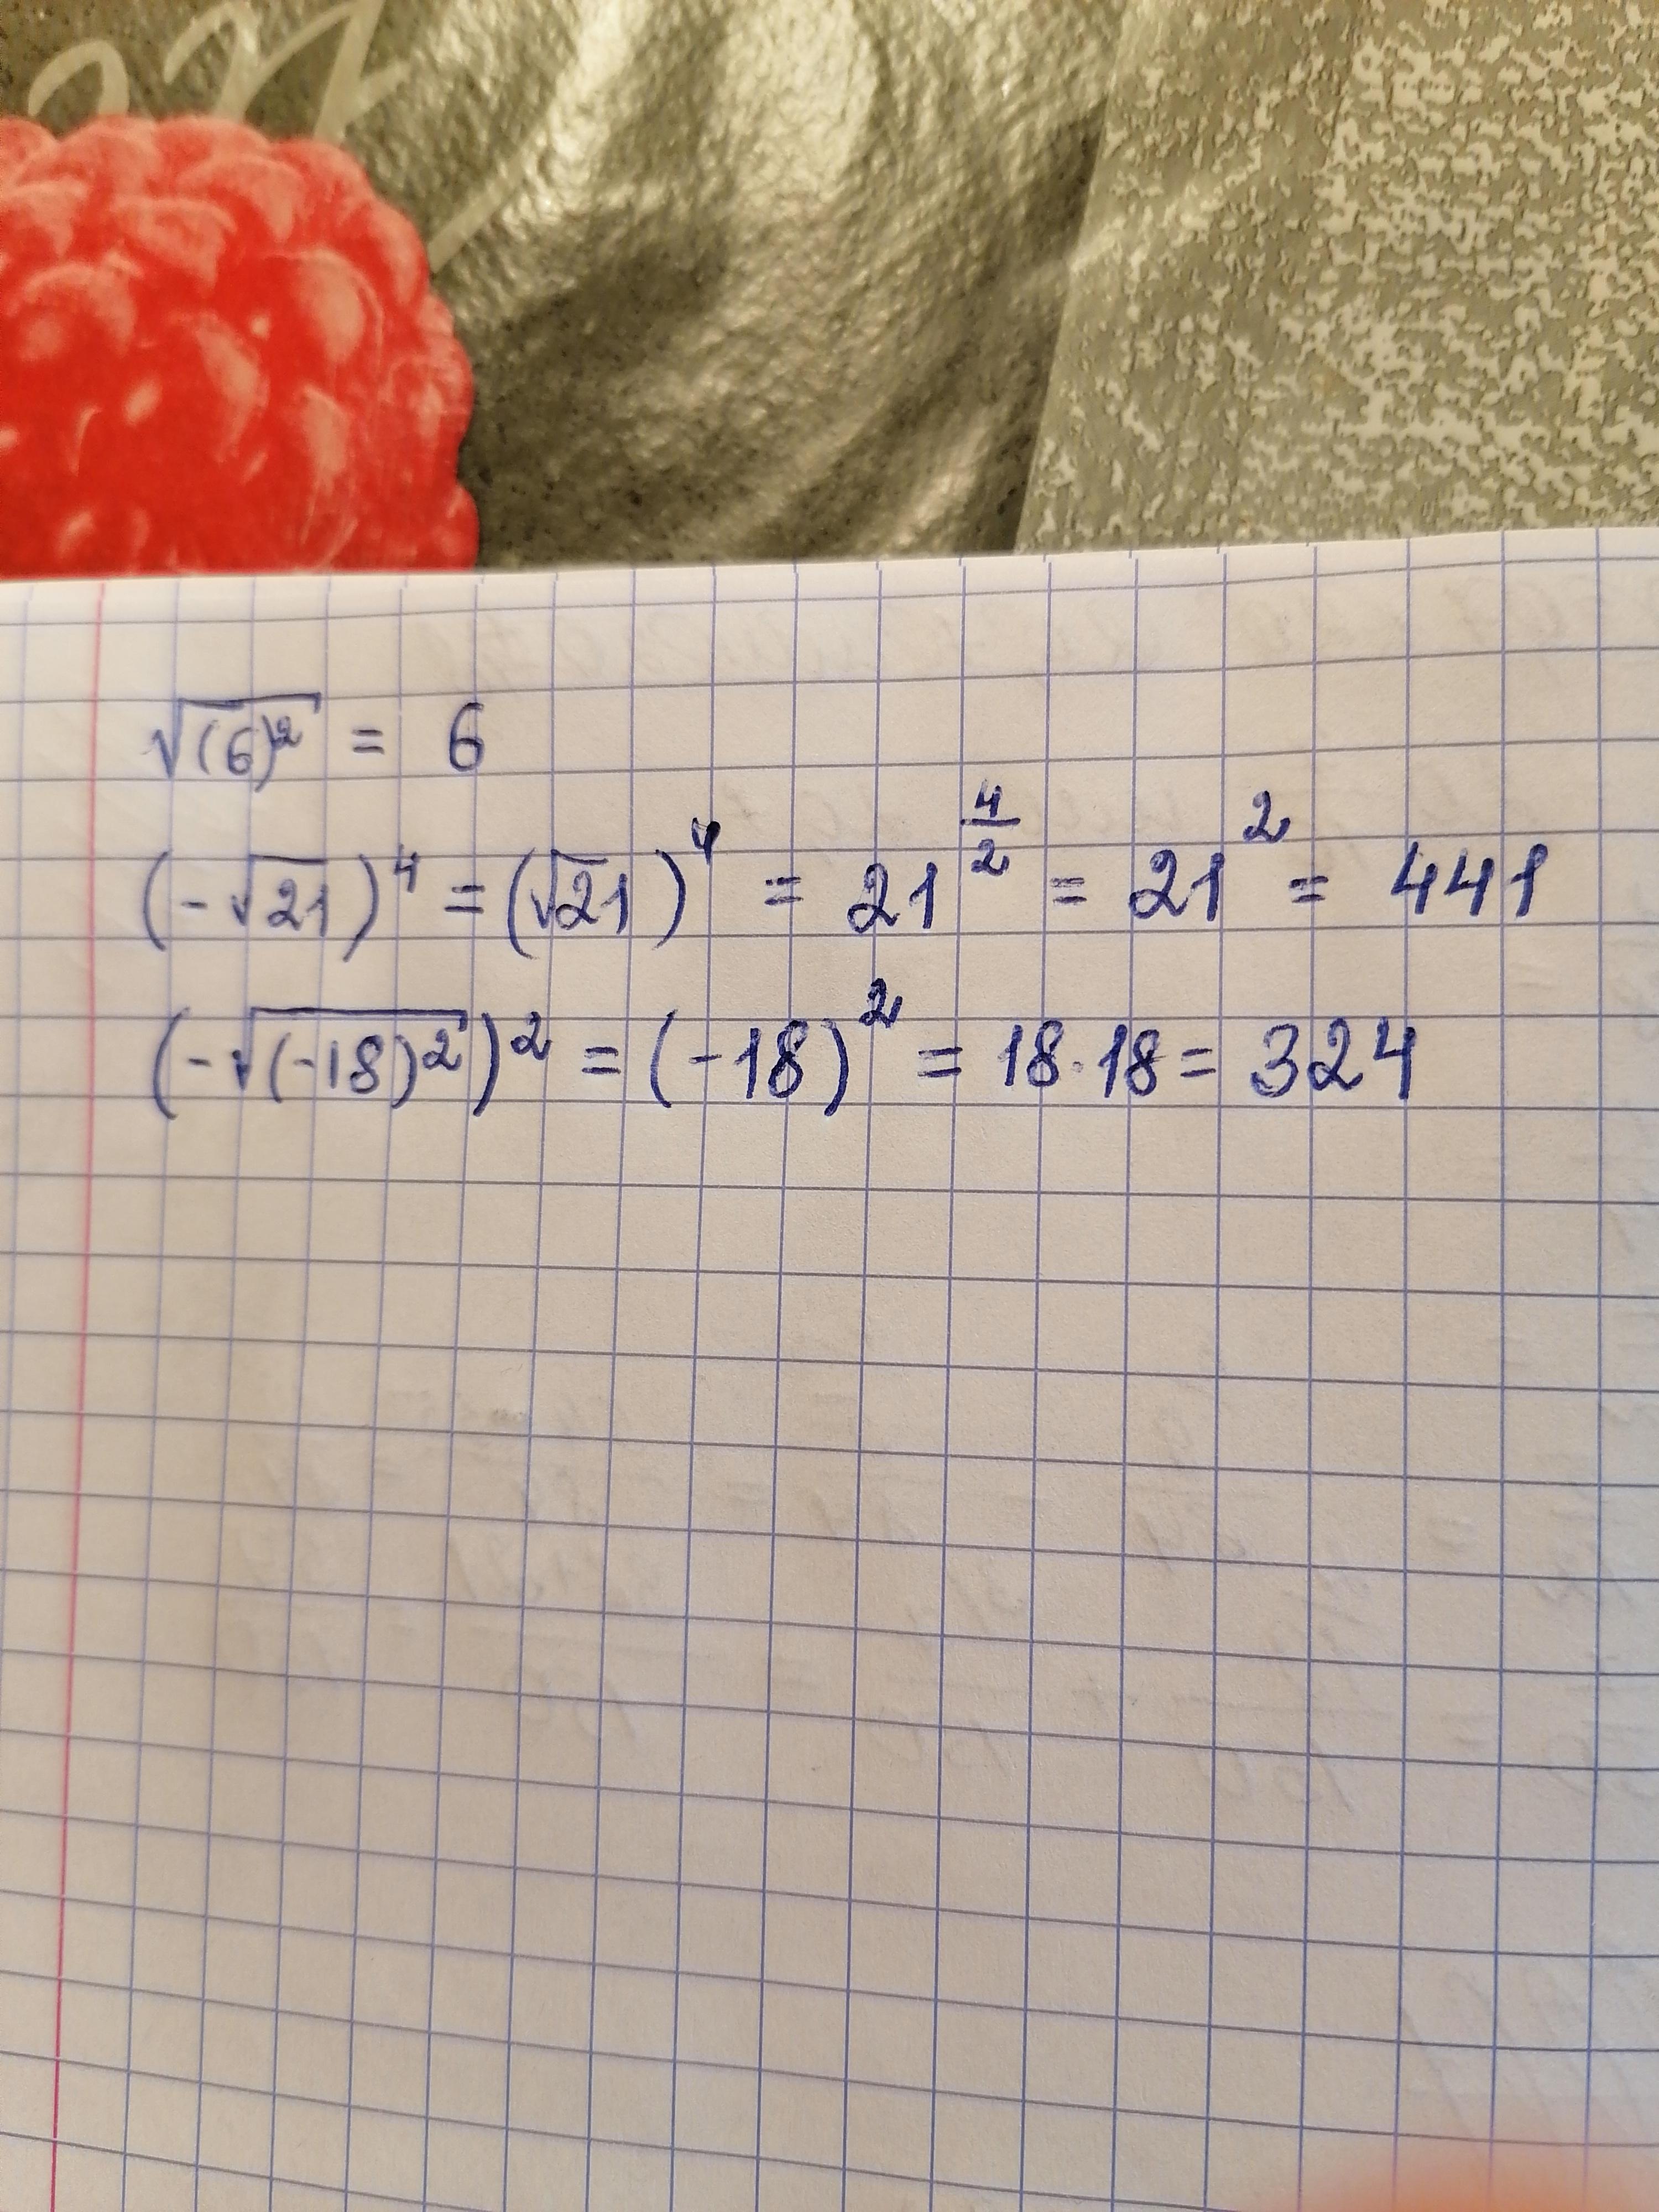 √(6)² = 6
(-√21)⁴ = (√21)⁴ = 21^(4/2) = 21² = 441
(-√(-18)²)² = (-18)² = 18·18 = 324